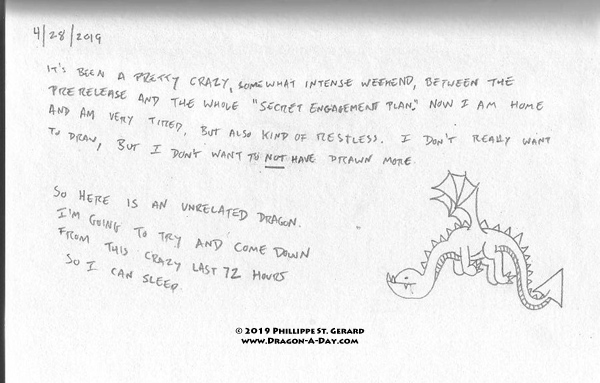 4/28/2019
IT'S BEEN A PRETTY CRAZY, SOMEWHAT INTENSE WEEKEND, BETWEEN THE
PRERELEASE AND THE WHOLE "SECRET ENGAGEMENT PLAN." NOW I AM HOME
AND AM VERY TIRED, BUT ALSO KIND OF RESTLESS. I DON'T REALLY WANT
TO DRAW, BUT I DON'T WANT TO NOT HAVE DRAWN MORE.
SO HERE IS AN UNRELATED DRAGON.
I'M GOING TO TRY AND COME DOWN
FROM THIS CRAZY LAST 72 HOURS
SO I CAN SLEEP.
© 2019 PHILLIPPE ST. GERARD
WWW.DRAGON-A-DAY.COM